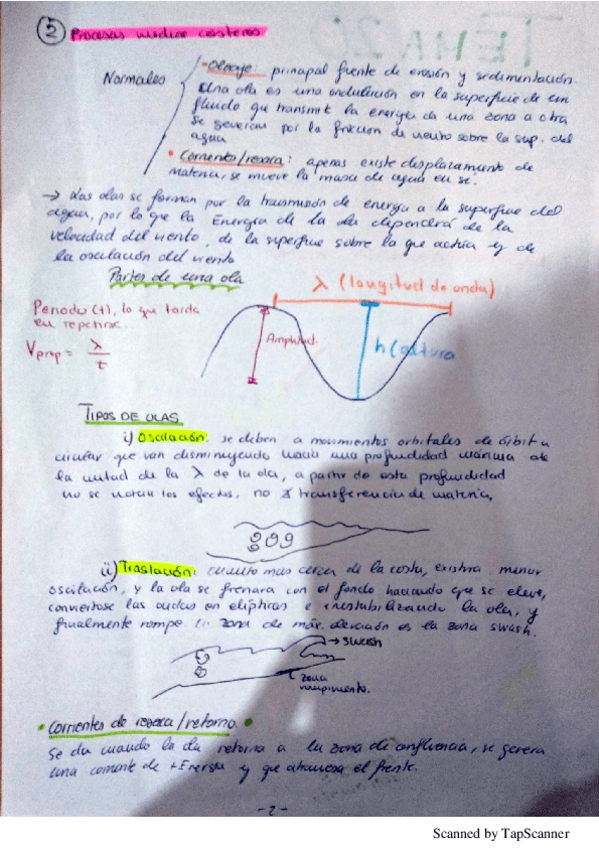 ② Procesos medios costeros
Normales
• Oleaje: principal fuente de erosión y sedimentación.
Una ola es una ondulación en la superficie de un
fluido que transmite la energía de una zona a otra
se generan por la fricción de viento sobre la sup. del
agua
• Corriente/resaca: apenas existe desplazamiento de
materia, se mueve la masa de agua en sí.
→ Las olas se forman por la transmisión de energía a la superficie del
agua, por lo que la Energía de la ola dependerá de la
velocidad del viento, de la superficie sobre la que actúa y de
la oscilación del viento
Partes de una ola
λ (longitud de onda)
Periodo (t), lo que tarda
en repetirse.
Amplitud.
h (altura
Vprop = λ/t
TIPOS DE OLAS
i) Oscilación: se deben a movimientos orbitales de órbita
circular que van disminuyendo hacia una profundidad máxima de
la mitad de la λ de la ola, a partir de esta profundidad
no se notan los efectos, no ∃ transferencia de materia,
ii) Traslación: cuanto más cerca de la costa, existirá menor
oscilación, y la ola se frenará con el fondo haciendo que se eleve,
convirtiose las ondas en elípticas e inestabilizando la ola, y
finalmente rompe. zona de máx. elevación es la zona swash.
→ swash
zona
rompimiento.
• Corrientes de resaca/retorno •
Se da cuando la ola retorna a la zona de confluencia, se genera
una corriente de +Energía y que atraviesa el frente.
-2-
Scanned by TapScanner